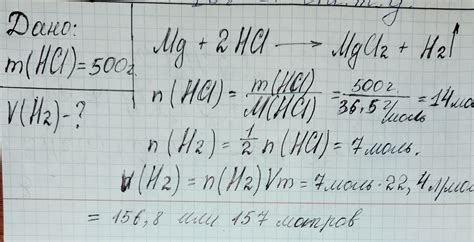 Дано:
m(HCl)=500г.
V(H2)-?
Mg + 2HCl → MgCl2 + H2↑
n(HCl) = m(HCl)/M(HCl) = 500г./36,5г/моль = 14мо
n(H2) = 1/2 n(HCl) = 7моль.
V(H2) = n(H2)Vm = 7моль·22,4л/мол
= 156,8 или 157 литров